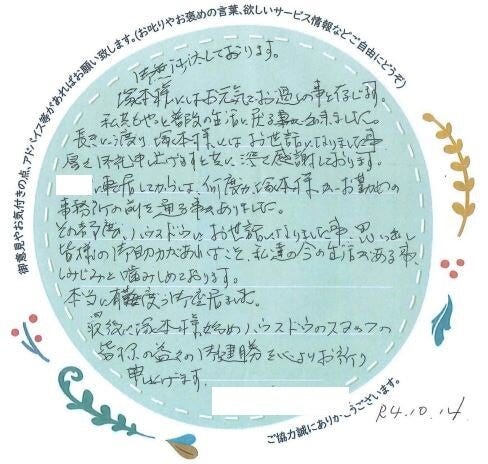 御意見やお気付きの点、アドバイス等があればお願い致します。(お叱りやお褒めの言葉、欲しいサービス情報などご自由にどうぞ)
御無沙汰しております。
塚本様にはお元気でお過しの事と存じます。
私共もやっと普段の生活に戻る事が出来ました。
長きに渡り、塚本様にはお世話になりました事
厚く御礼申し上げますと共に深く感謝しております。
に転居してからは、何度か塚本様がお勤めの
事務所の前を通る事がありました。
その都度、ハウスドゥにお世話になりました事、思い出し
皆様の御助力があればこそ、私達の今の生活がある事、
しみじみと噛みしめております。
本当に有難度う御座居ました。
最後に塚本様始めハウスドゥのスタッフの
皆様の益々の御健勝を心よりお祈り
申し上げます。
ご協力誠にありがとうございます。
R4.10.14.